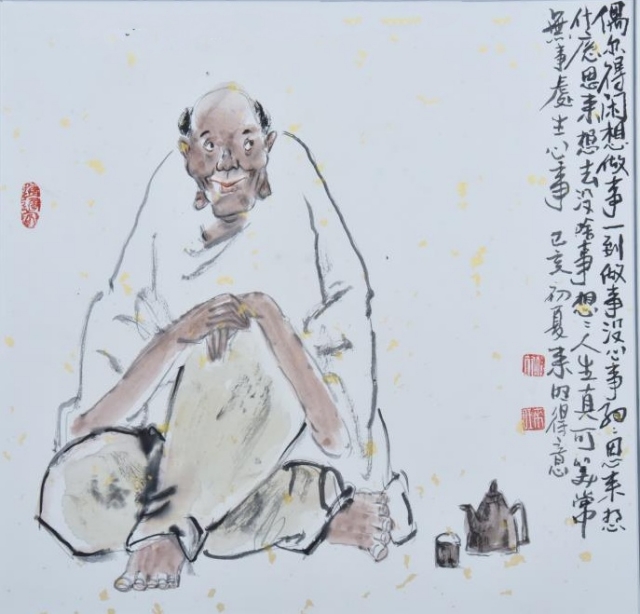 偶尔得闲想做事一到做事没心事细:思来想
什么思来想去没啥事想:人生真可笑常
無事處生心事 己亥初夏来明得意